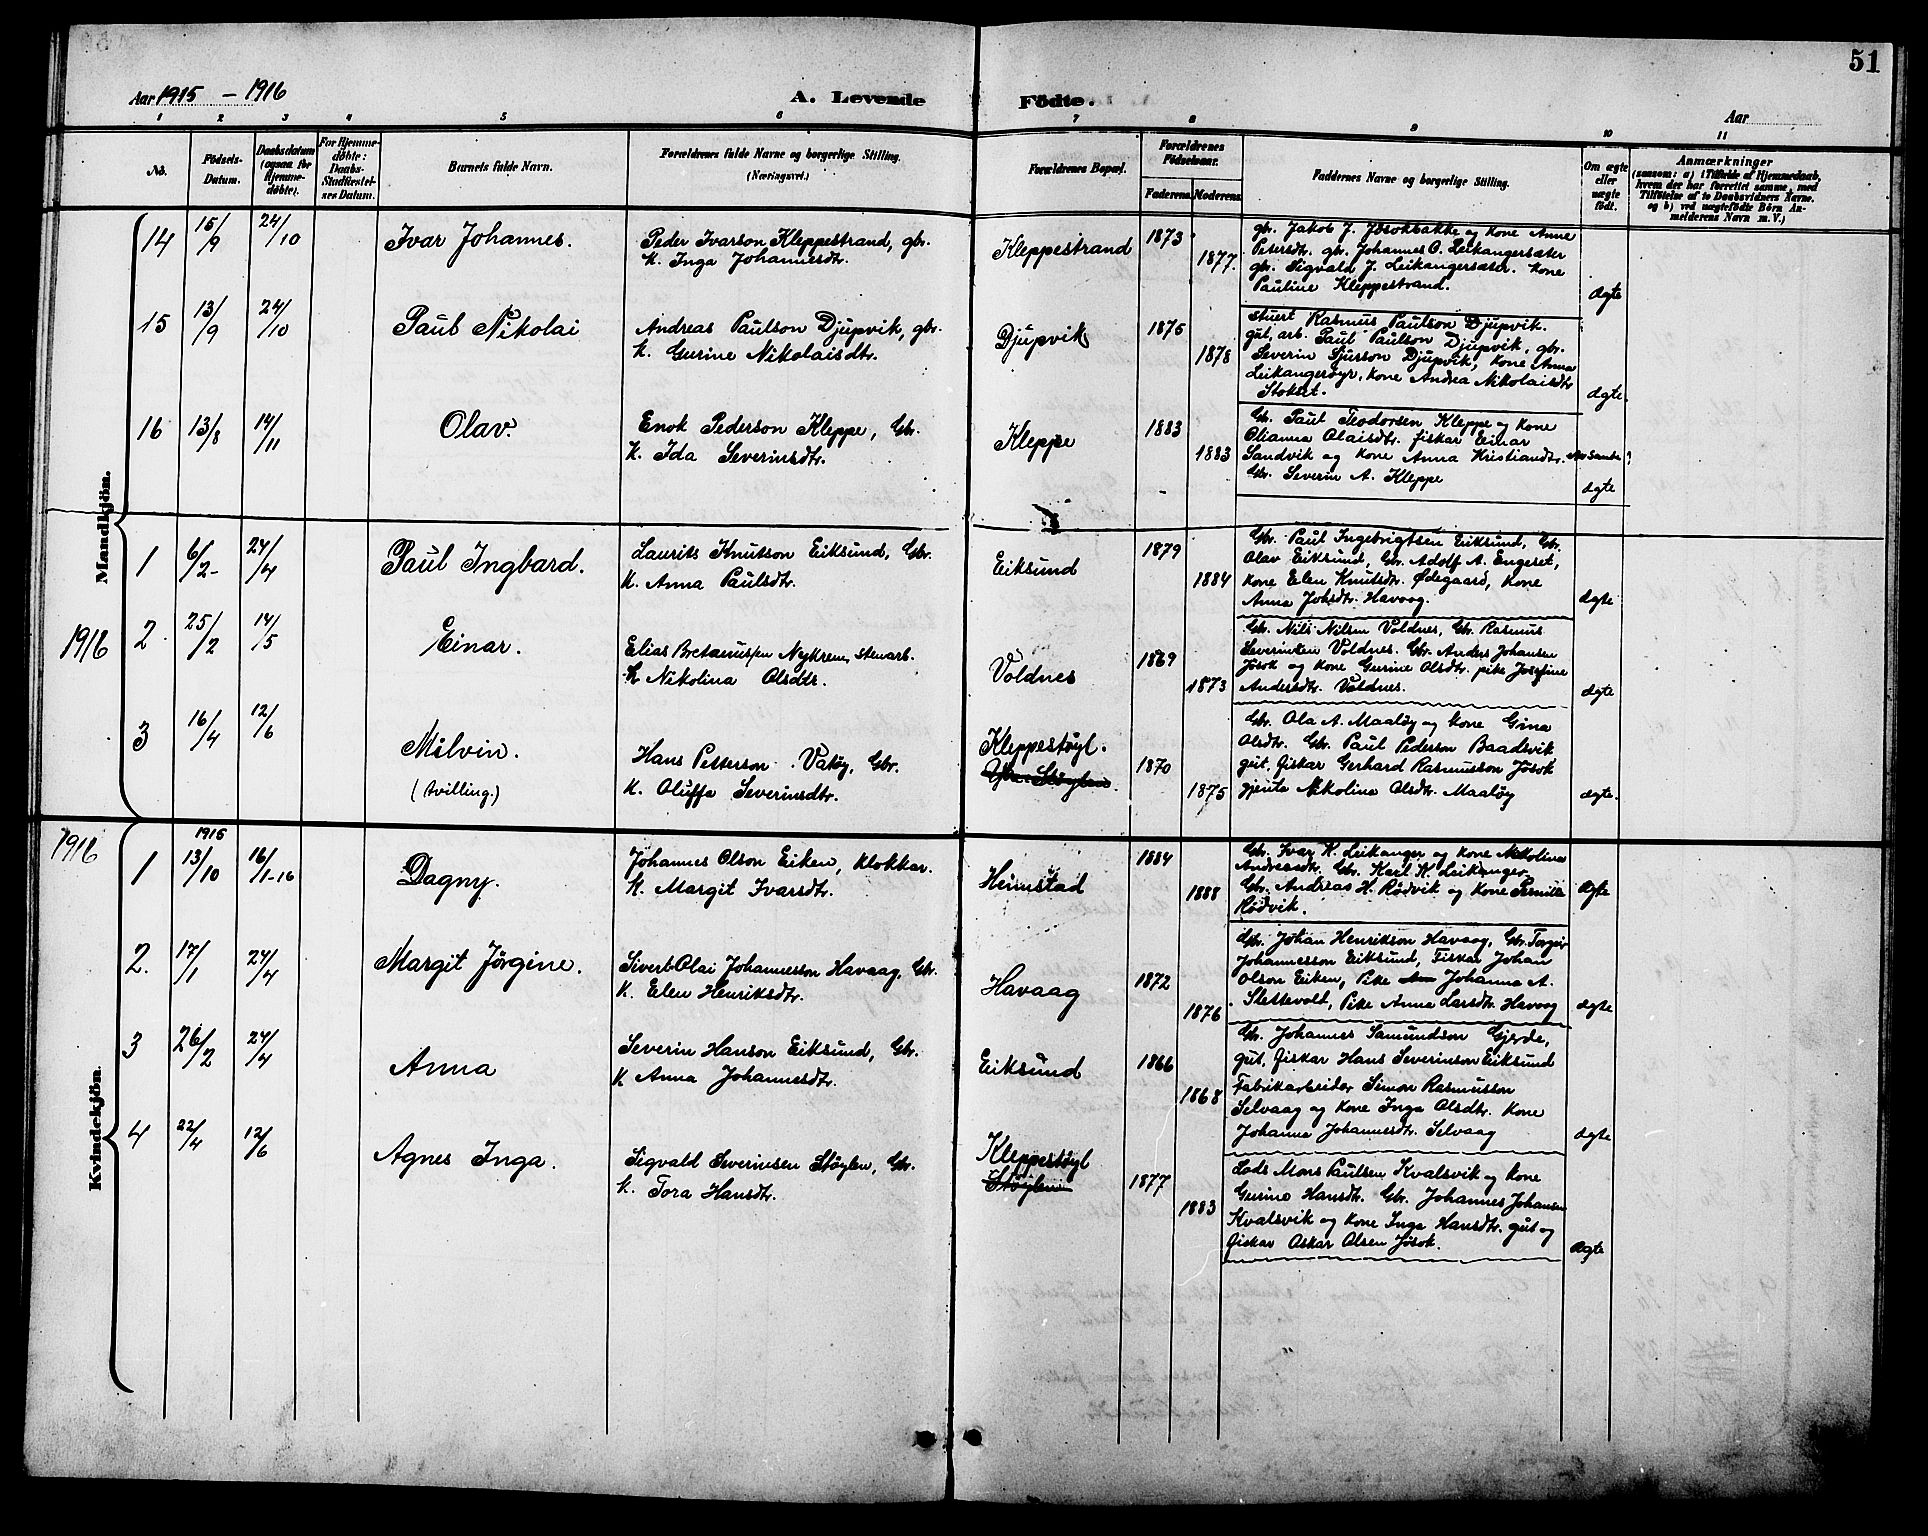 51
Aar 1915 – 1916
A. Levende
Födte.
Aar
1 2 3 4 5 6 7 8 9 10 11
No.
Födsels-
Datum.
Daabsdatum
(ogsaa for
Hjemme-
döbte).
For Hjemme-
döbte:
Daabs-
Stadfæstel-
ses Datum.
Barnets fulde Navn.
Forældrenes fulde Navne og borgerlige Stilling.
(Næringsvei.)
Forældrenes Bopæl.
Forældrenes
Födselsaar.
Faderens. Moderens.
Faddernes Navne og borgerlige Stilling.
Om ægte
eller
uægte
födt.
Anmærkninger
(saasom: a) i Tilfælde af Hjemmedaab,
hvem der har forrettet samme, med
Tilföielse af to Daabsvidners Navne.
og b) ved uægtefödte Börn An-
melderens Navn m. V.)
Mandkjön.
14 15/9 24/10 Ivar Johannes. Peder Ivarson Kleppestrand, gbr.
K. Inga Johannesdtr.
Kleppestrand 1873 1877.
gbr. Jakob J. Jøsokbakke og Kone Anne
Petersdtr. gbr. Johannes O. Leikangersæter
gbr. Sigvald J. Leikangersæter. Kone
Pauline Kleppestrand.
ægte
15 13/9 24/10 Paul Nikolai Andreas Paulson Djupvik, gbr.
K. Gurine Nikolaisdtr.
Djupvik 1875 1878
stuert Rasmus Paulson Djupvik.
gut, arb. Paul Paulson Djupvik, gbr.
Severin Sjurson Djupvik, Kone Anna
Leikangersøyr, Kone Andrea Nikolaisdtr
Stokset.
ægte.
16 13/8 14/11 Olav. Enok Pederson Kleppe, Gbr.
K. Ida Severinsdtr.
Kleppe 1883 1883
Gbr. Paul Teodorsen Kleppe og Kone
Olianna Olaisdtr. fiskar Einar
Sandvik og Kone Anna Kristiandtr.
Gbr. Severin A. Kleppe
ægte
1 6/2 24/4 Paul Ingbard. Laurits Knutson Eiksund, Gbr.
K. Anna Paulsdtr.
Eiksund 1879 1884
Gbr. Paul Ingebrigtsen Eiksund, Gbr.
Olav Eiksund, Gbr. Adolf A. Engeset,
Kone Elen Knutsdtr. Ødegaard, Kone
Anna Johsdtr. Havaag.
ægte
1916 2 25/2 14/5 Einar. Elias Bretanussen Nykrem, stenarb.
K. Nikolina Olsdtr.
Voldnes 1869 1873
Gbr. Nils Nilsen Voldnes, Gbr. Rasmus
Severinsen Voldnes. Gbr. Anders Johansen
Jøsok og Kone Gurine Olsdtr. pike Josefine
Andersdtr. Voldnes.
ægte
3 16/4 12/6 Milvin.
(tvilling.)
Hans Petterson Vatøy, Gbr.
K. Oluffa Severinsdtr.
Kleppestøyl. 1870 1875
Gbr. Ola A. Maaløy og Kone Gina
Olsdtr. Gbr. Paul Pederson Baadsvik
gut, fiskar Gerhard Rasmusson Jøsok
gjenta Nikolina Olsdtr. Maaløy
ægte.
1916
Kvindekjön.
1 1915 13/10 16/1-16 Dagny. Johannes Olson Eiken, Klokkar.
K. Margit Ivarsdtr.
Heimstad 1884 1888
Gbr. Ivar K. Leikanger og Kone Nikolina
Andreasdtr. Gbr. Karl K. Leikanger,
Gbr. Andreas H. Rödvik og Kone Pernille
Rödvik.
ægte
2. 17/1 24/4 Margit Jörgine. Sivert Olai Johannesson Havaag, Gbr.
K. Elen Henriksdtr.
Havaag 1872 1876
Gbr. Johan Henrikson Havaag, Gbr. Torgeir
Johannesson Eiksund, Fiskar Johan
Olson Eiken, Pike Johanna A.
Slettevolt, Pike Anna Larsdtr. Havaag
ægte
3 26/2 24/4 Anna Severin Hanson Eiksund, Gbr.
K Anna Johannesdtr.
Eiksund 1866 1868
Gbr. Johannes Samundson Gjerde,
gut, fiskar Hans Severinson Eiksund
Fabrikarbeider Simon Rasmusson
Selvaag og Kone Inga Olsdtr. Kone
Johanna Johannesdtr. Selvaag
ægte
4 22/4 12/6 Agnes Inga. Sigvald Severinsen Støylen, Gbr.
K. Tora Hansdtr.
Kleppestøyl
Støylen 1877 1883
Lods Mons Paulsen Kvalsvik og Kone
Gurine Hansdtr. Gbr. Johannes Johansen
Kvalsvik og Kone Inga Hansdtr. gut og
fiskar Oskar Olsen Jøsok.
ægte